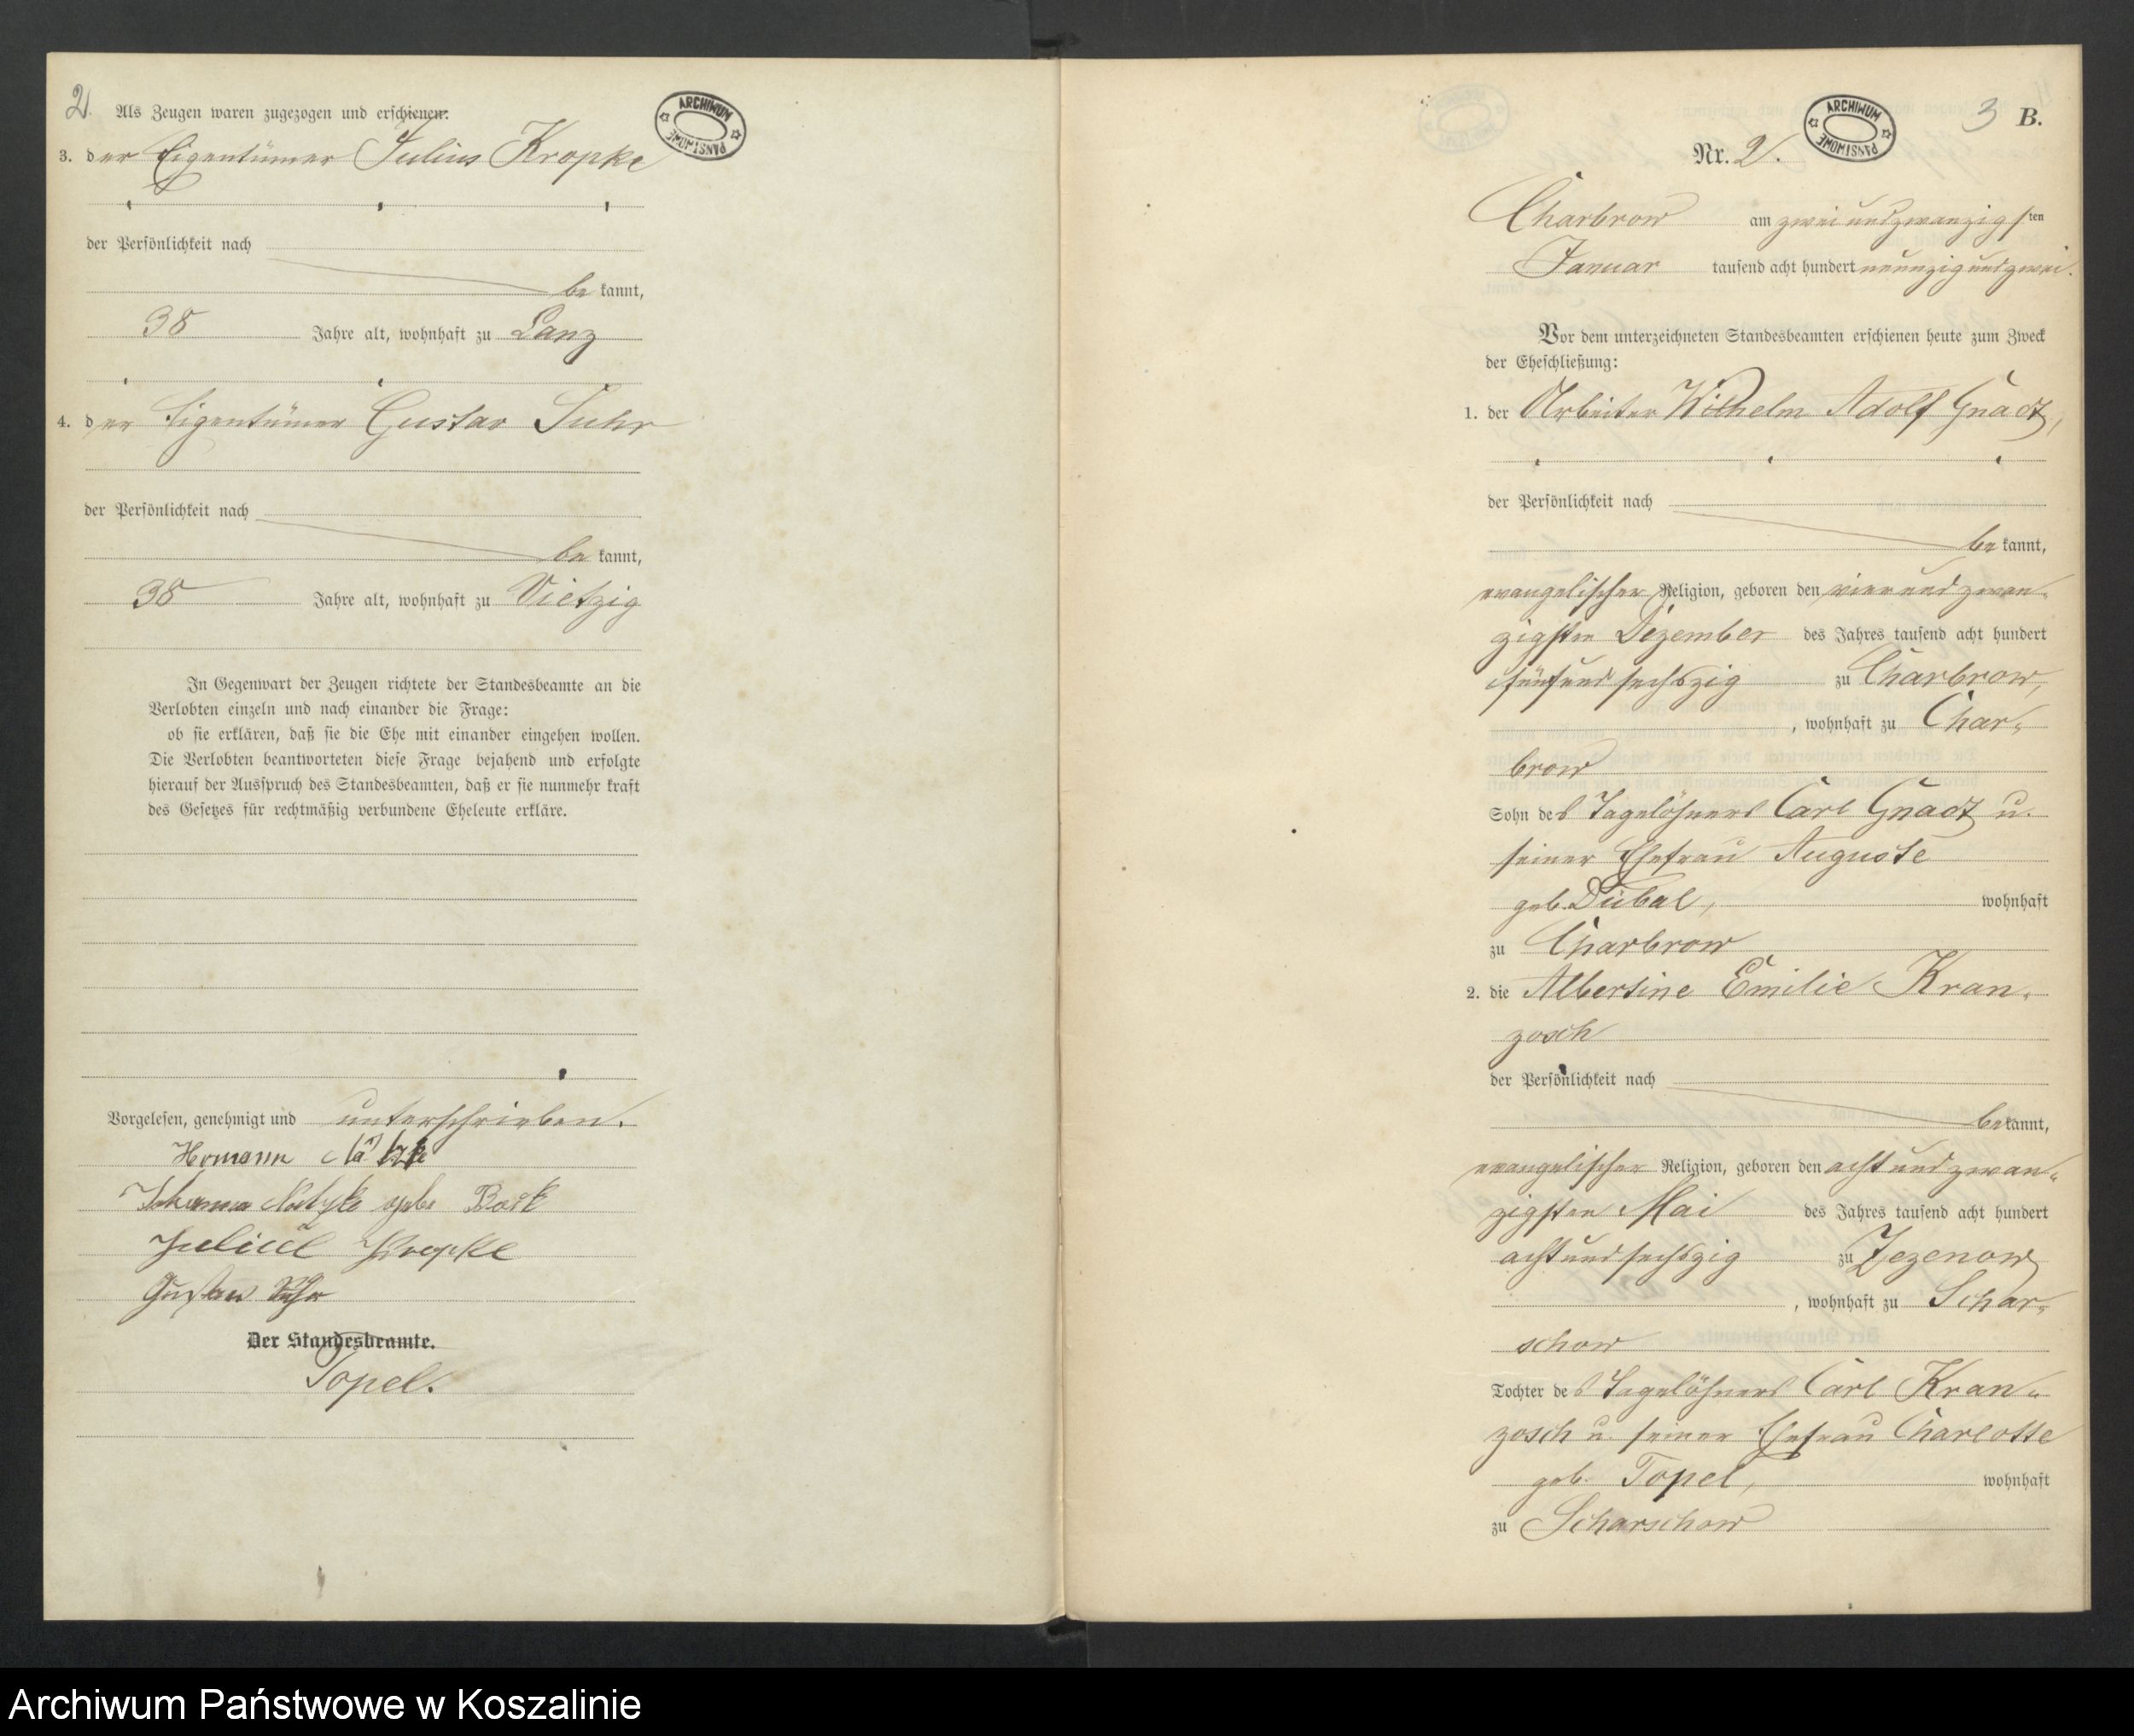 2.
Als Zeugen waren zugezogen und erschienen:
3. der Eigentümer Julius Kropke
der Persönlichkeit nach
be kannt,
38 Jahre alt, wohnhaft zu Lanz
4. der Eigentümer Gustav Suhr
der Persönlichkeit nach
be kannt,
38 Jahre alt, wohnhaft zu Vietzig
In Gegenwart der Zeugen richtete der Standesbeamte an die
Verlobten einzeln und nach einander die Frage:
ob sie erklären, daß sie die Ehe mit einander eingehen wollen.
Die Verlobten beantworteten diese Frage bejahend und erfolgte
hierauf der Ausspruch des Standesbeamten, daß er sie nunmehr kraft
des Gesetzes für rechtmäßig verbundene Eheleute erkläre.
Vorgelesen, genehmigt und unterschrieben.
Julius Kropke
Gustav Suhr
Der Standesbeamte.
Topel.
ARCHIWUM PAŃSTWOWE
ARCHIWUM PAŃSTWOWE
3 B.
Nr. 2.
Charbrow am zwei und zwanzigsten
Januar tausend acht hundert neunzig und zwei.
Vor dem unterzeichneten Standesbeamten erschienen heute zum Zweck
der Eheschließung:
1. der Arbeiter Wilhelm Adolf Gnadt,
der Persönlichkeit nach
be kannt,
evangelischer Religion, geboren den vier und zwan-
zigsten Dezember des Jahres tausend acht hundert
fünf und sechszig zu Charbrow,
, wohnhaft zu Char-
brow
Sohn des Tagelöhners Carl Gnadt u.
seiner Ehefrau Auguste
geb. Dubal, wohnhaft
zu Charbrow
2. die Albertine Emilie Kran-
zosch
der Persönlichkeit nach
be kannt,
evangelischer Religion, geboren den acht und zwan-
zigsten Mai des Jahres tausend acht hundert
acht und sechszig zu Zezenow
, wohnhaft zu Schar-
schow
Tochter des Tagelöhners Carl Kran-
zosch u. seiner Ehefrau Charlotte
geb. Topel, wohnhaft
zu Scharschow
Archiwum Państwowe w Koszalinie